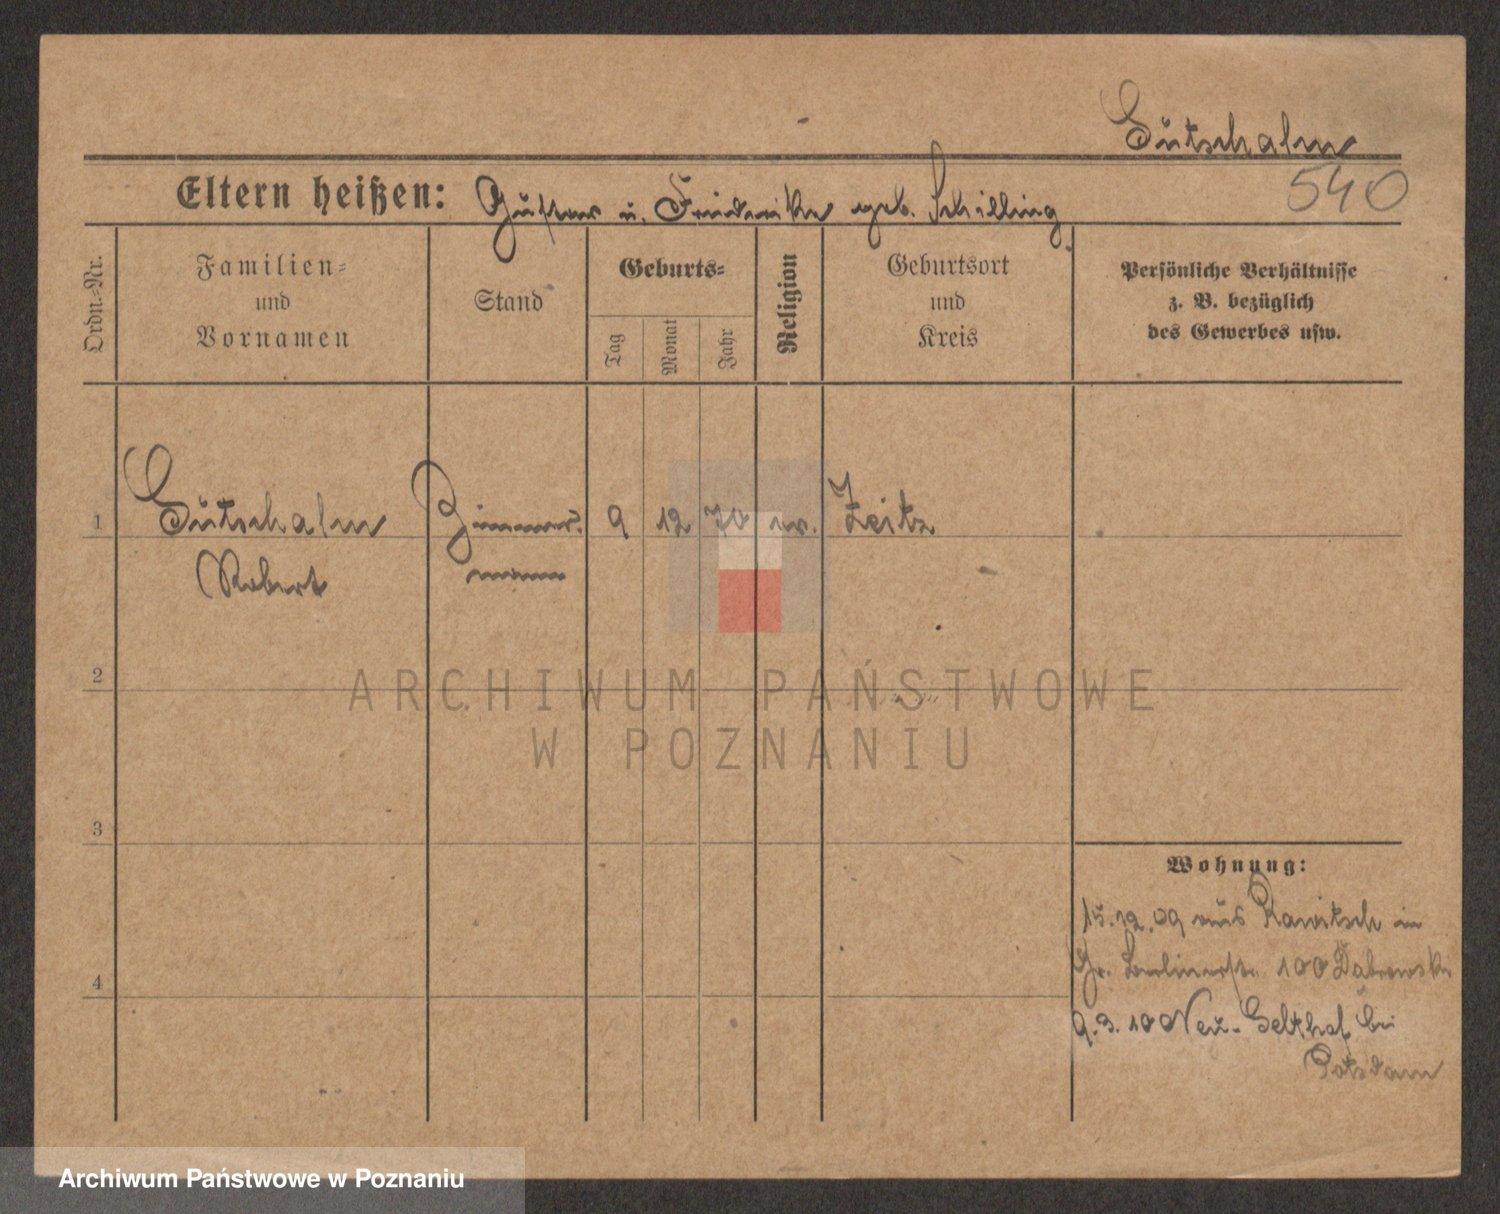 Gutschalm
Eltern heißen: Gustav u. Friederike geb. Schilling
540
Ordn.-Nr.
Familien-
und
Vornamen
Stand
Geburts-
Tag
Monat
Jahr
Religion
Geburtsort
und
Kreis
Persönliche Verhältnisse
z. B. bezüglich
des Gewerbes usw.
1 Gutschalm Zimmer- 9 12 70 ev. Zeitz
Robert mann
2
3
4
Wohnung:
15.12.09 aus Rawitsch in
Gr. Berlinerstr. 100 Dabrowski
9.3.10 Neu- bei
Potsdam
ARCHIWUM PAŃSTWOWE
W POZNANIU
Archiwum Państwowe w Poznaniu